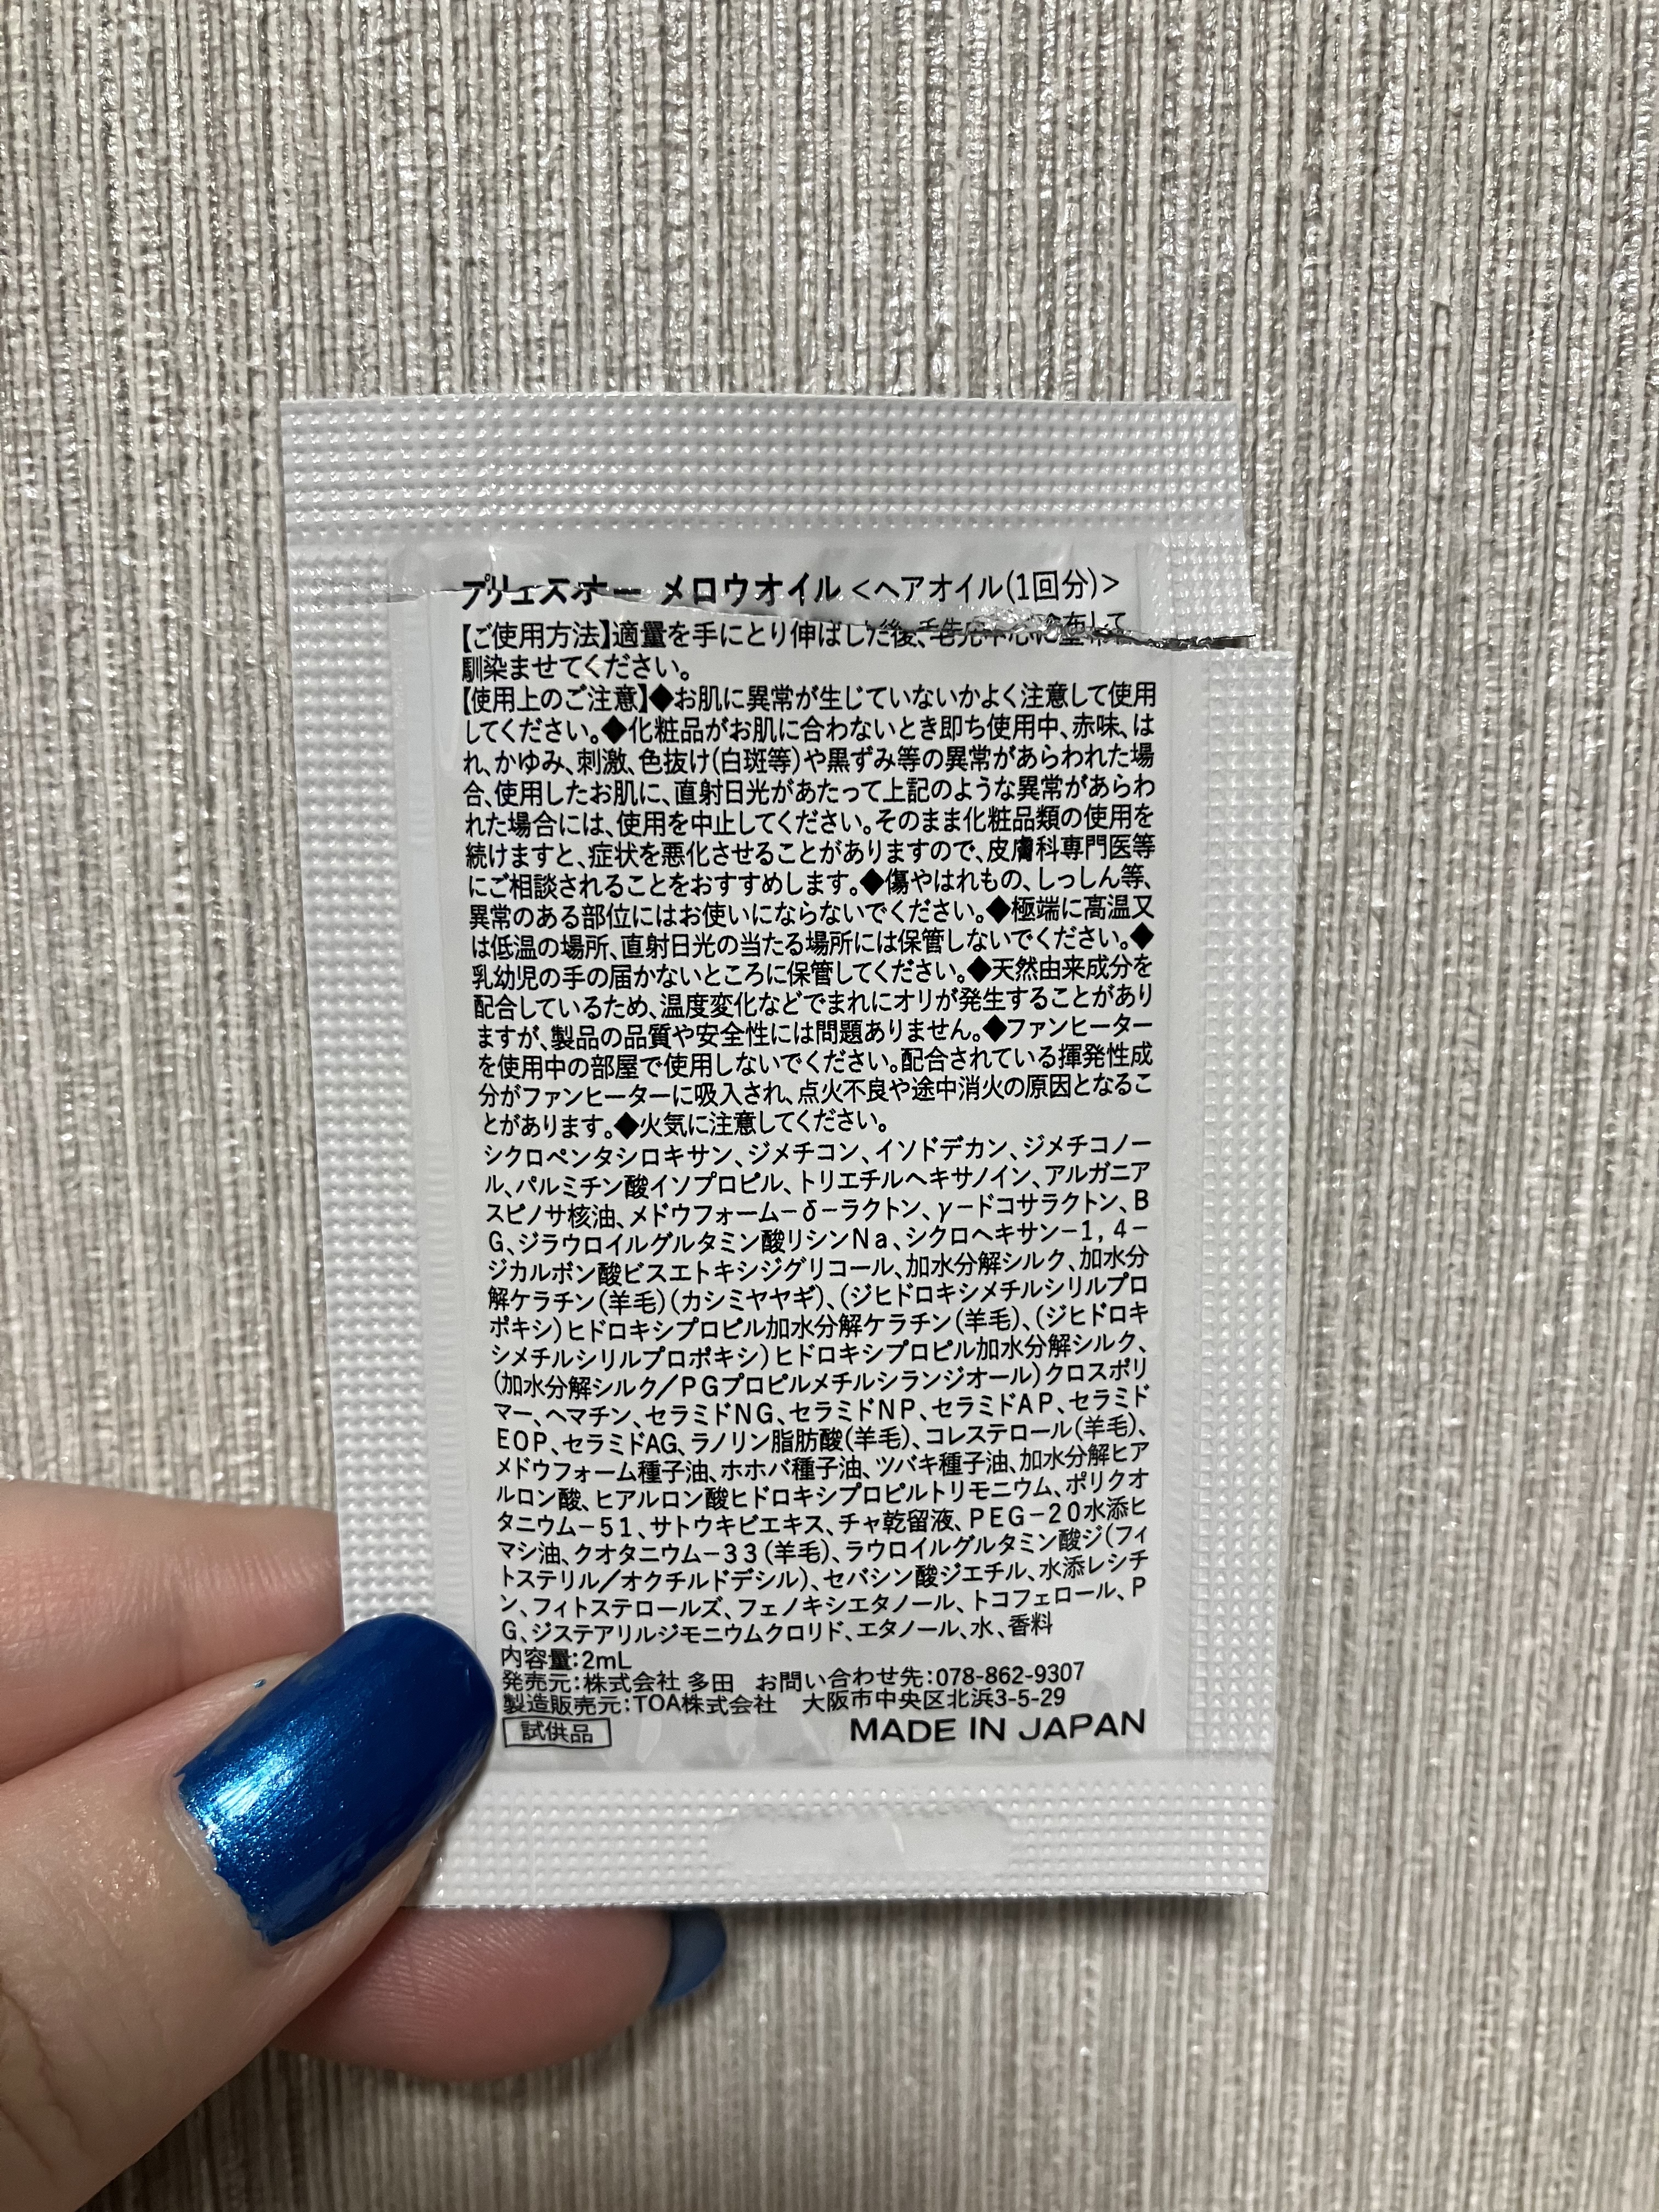 プリュスオー メロウオイル<ヘアオイル(1回分)>
【ご使用方法】適量を手にとり伸ばした後、毛先中心に塗布して
馴染ませてください。
【使用上のご注意】◆お肌に異常が生じていないかよく注意して使用
してください。◆化粧品がお肌に合わないとき即ち使用中、赤味、は
れ、かゆみ、刺激、色抜け(白斑等)や黒ずみ等の異常があらわれた場
合、使用したお肌に、直射日光があたって上記のような異常があらわ
れた場合には、使用を中止してください。そのまま化粧品類の使用を
続けますと、症状を悪化させることがありますので、皮膚科専門医等
にご相談されることをおすすめします。◆傷やはれもの、しっしん等、
異常のある部位にはお使いにならないでください。◆極端に高温又
は低温の場所、直射日光の当たる場所には保管しないでください。◆
乳幼児の手の届かないところに保管してください。◆天然由来成分を
配合しているため、温度変化などでまれにオリが発生することがあり
ますが、製品の品質や安全性には問題ありません。◆ファンヒーター
を使用中の部屋で使用しないでください。配合されている揮発性成
分がファンヒーターに吸入され、点火不良や途中消火の原因となるこ
とがあります。◆火気に注意してください。
シクロペンタシロキサン、ジメチコン、イソドデカン、ジメチコノー
ル、パルミチン酸イソプロピル、トリエチルヘキサノイン、アルガニア
スピノサ核油、メドウフォーム－δ－ラクトン、γ－ドコサラクトン、B
G、ジラウロイルグルタミン酸リシンNa、シクロヘキサン－1,4－
ジカルボン酸ビスエトキシジグリコール、加水分解シルク、加水分
解ケラチン(羊毛)(カシミヤヤギ)、(ジヒドロキシメチルシリルプロ
ポキシ)ヒドロキシプロピル加水分解ケラチン(羊毛)、(ジヒドロキ
シメチルシリルプロポキシ)ヒドロキシプロピル加水分解シルク、
(加水分解シルク／PGプロピルメチルシランジオール)クロスポリ
マー、ヘマチン、セラミドNG、セラミドNP、セラミドAP、セラミド
EOP、セラミドAG、ラノリン脂肪酸(羊毛)、コレステロール(羊毛)、
メドウフォーム種子油、ホホバ種子油、ツバキ種子油、加水分解ヒア
ルロン酸、ヒアルロン酸ヒドロキシプロピルトリモニウム、ポリクオ
タニウム－51、サトウキビエキス、チャ乾留液、PEG－20水添ヒ
マシ油、クオタニウム－33(羊毛)、ラウロイルグルタミン酸ジ(フィ
トステリル／オクチルドデシル)、セバシン酸ジエチル、水添レシチ
ン、フィトステロールズ、フェノキシエタノール、トコフェロール、P
G、ジステアリルジモニウムクロリド、エタノール、水、香料
内容量:2mL
発売元:株式会社 多田 お問い合わせ先:078-862-9307
製造販売元:TOA株式会社 大阪市中央区北浜3-5-29
試供品 MADE IN JAPAN